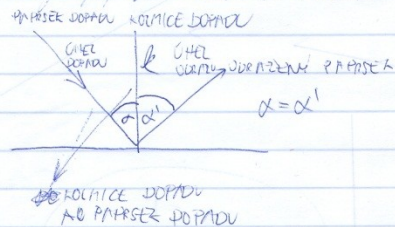 PAPRSEK DOPADU KOLMICE DOPADU
ÚHEL DOPADU
k
ÚHEL ODRAZU
ODRAŽENÝ PAPRSEK
α α'
α = α'
KOLMICE DOPADU
A PAPRSEK DOPADU